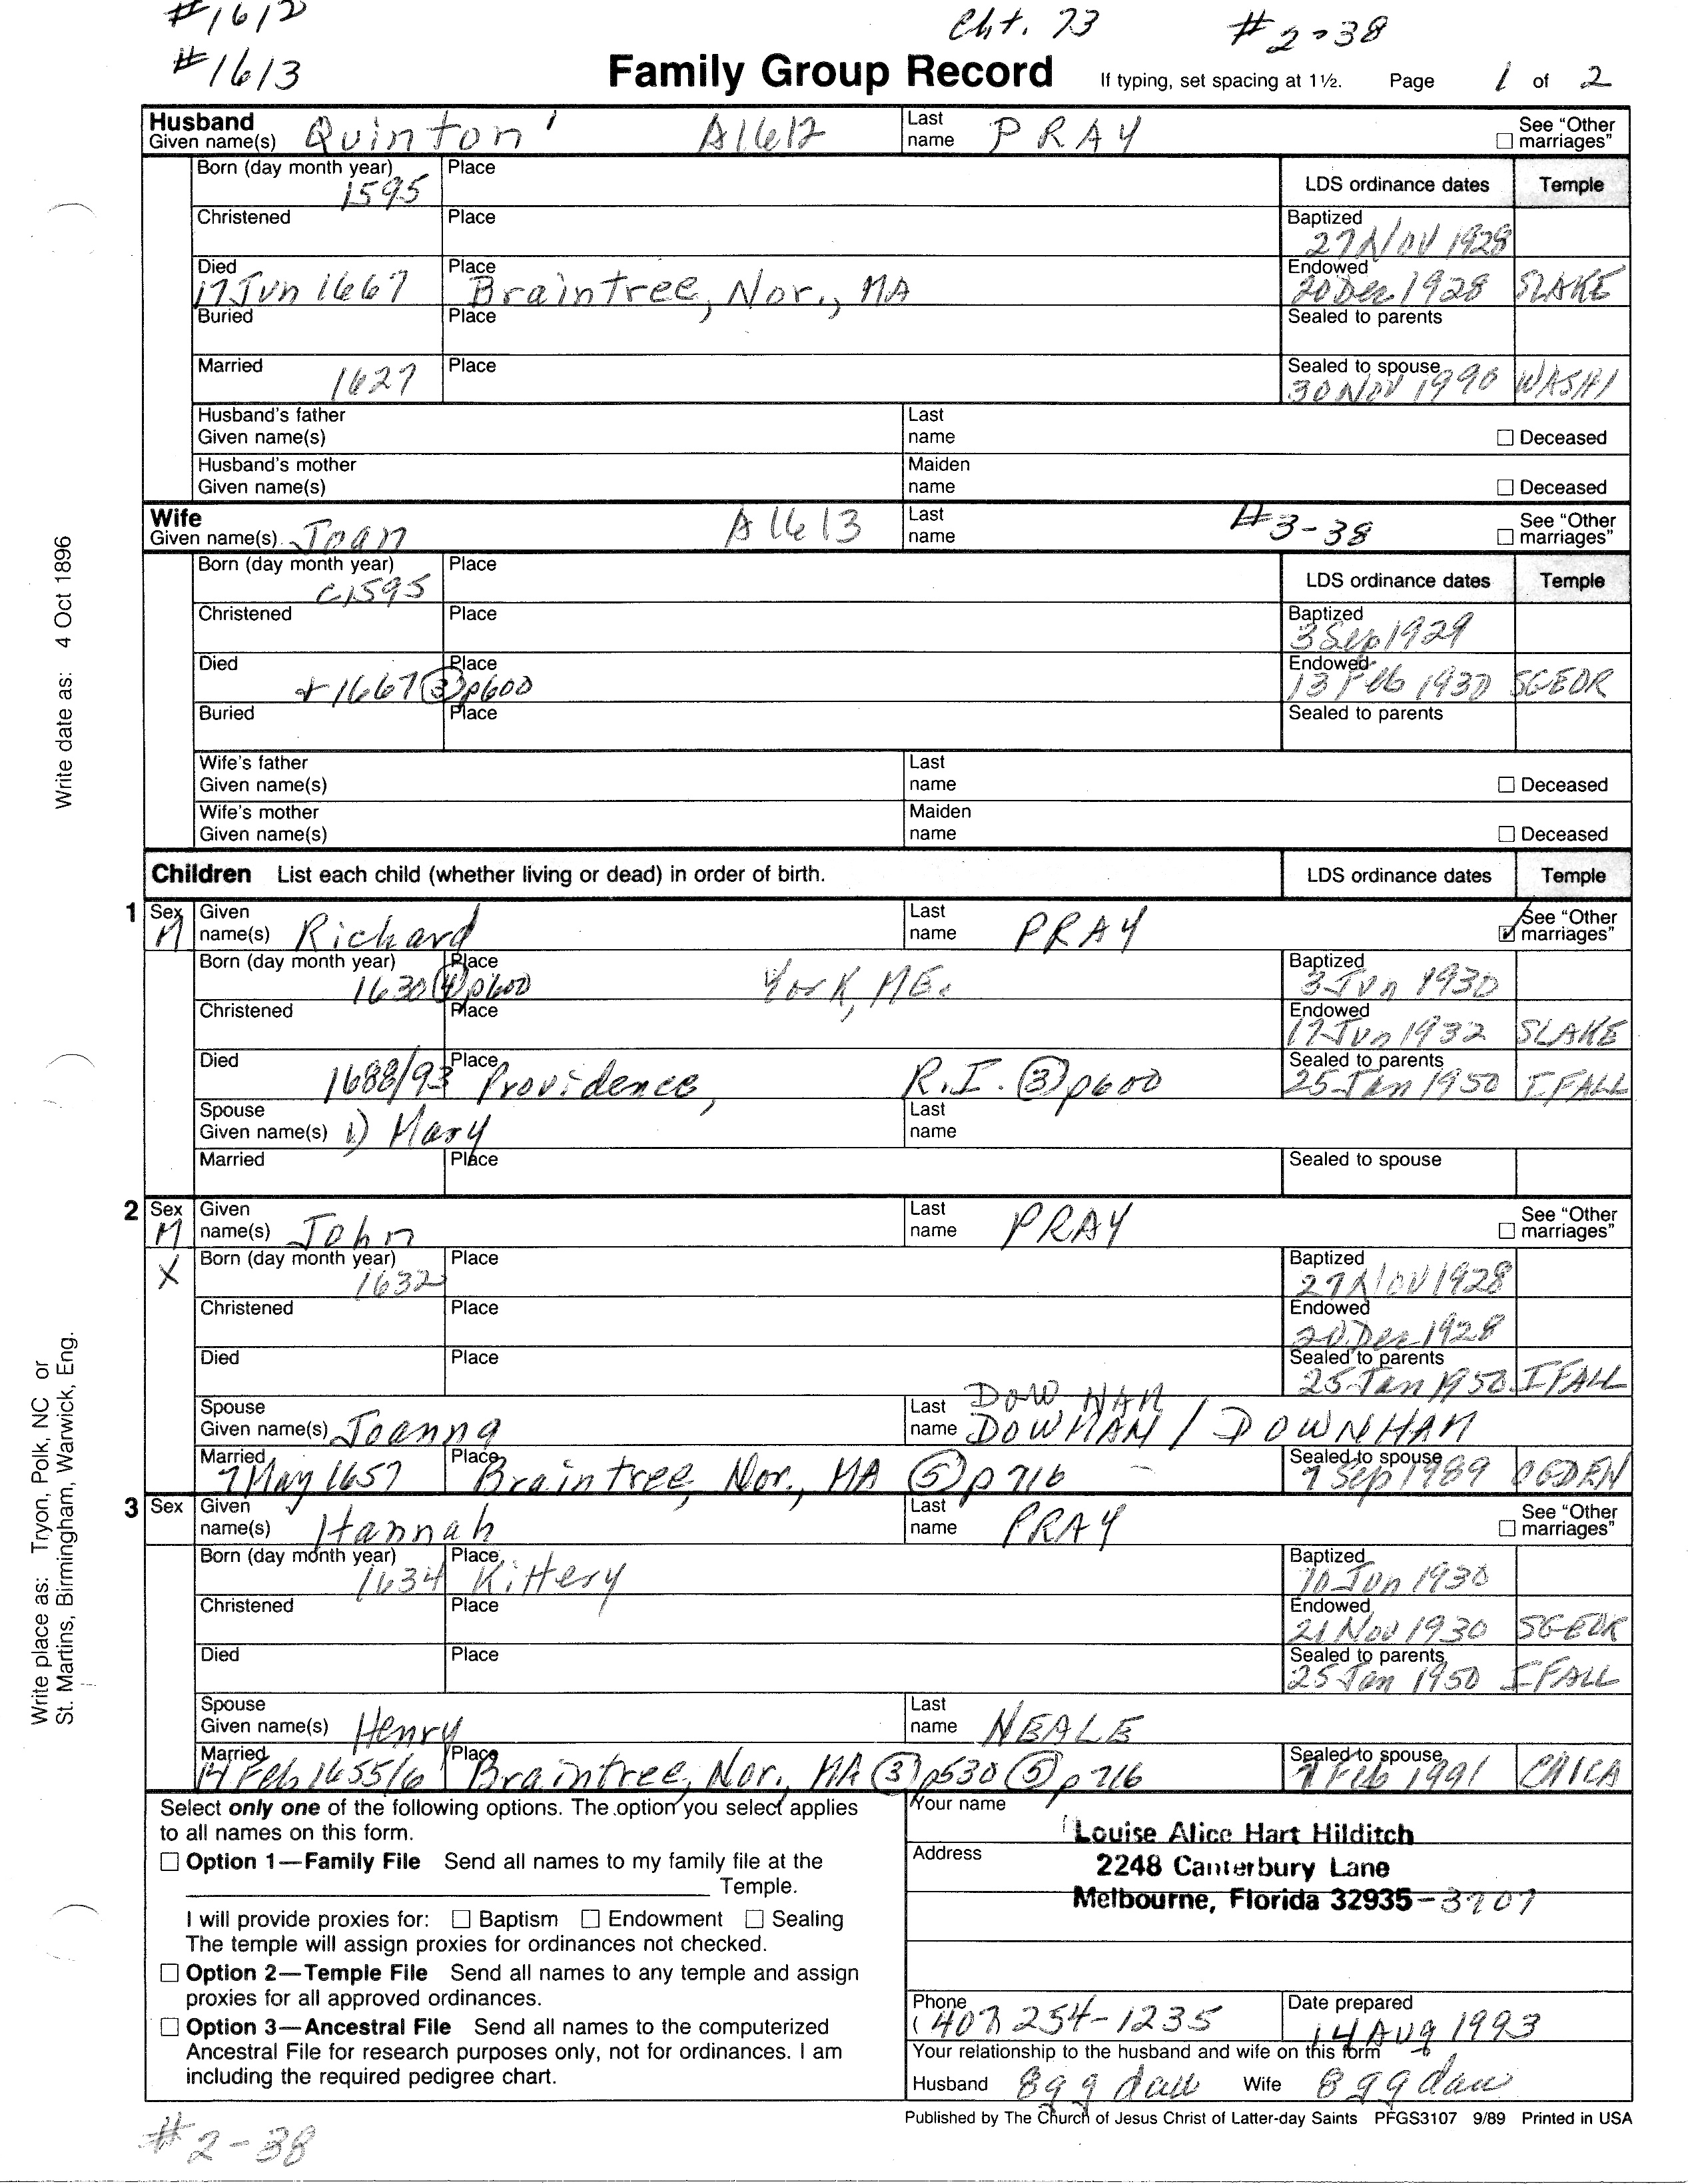 #1612 Cht. 73 #2-38
#1613 Family Group Record If typing, set spacing at 1½. Page 1 of 2
Husband
Given name(s) Quinton A1612 Last name PRAY ☐ See "Other marriages"
Born (day month year) 1595 Place LDS ordinance dates Temple
Christened Place Baptized 27 NOV 1928
Died 17 Jun 1667 Place Braintree, Nor., MA Endowed 20 Dec 1928 SLAKE
Buried Place Sealed to parents
Married 1627 Place Sealed to spouse 30 NOV 1990 WASHI
Husband's father
Given name(s) Last name ☐ Deceased
Husband's mother
Given name(s) Maiden name ☐ Deceased
Wife
Given name(s) Joan A1613 Last name #3-38 ☐ See "Other marriages"
Born (day month year) c1595 Place LDS ordinance dates Temple
Christened Place Baptized 3 Sep 1929
Died +1667 ③ p600 Place Endowed 13 Feb 1930 SGEOR
Buried Place Sealed to parents
Wife's father
Given name(s) Last name ☐ Deceased
Wife's mother
Given name(s) Maiden name ☐ Deceased
Children List each child (whether living or dead) in order of birth. LDS ordinance dates Temple
1 Sex M Given name(s) Richard Last name PRAY ☑ See "Other marriages"
Born (day month year) 1630 ④ p600 Place York, ME. Baptized 3 Jun 1930
Christened Place Endowed 17 Jun 1932 SLAKE
Died 1688/93 Place Providence, R.I. ③ p600 Sealed to parents 25 Jan 1950 IFALL
Spouse
Given name(s) 1) Mary Last name
Married Place Sealed to spouse
2 Sex M Given name(s) John Last name PRAY ☐ See "Other marriages"
X Born (day month year) 1632 Place Baptized 27 NOV 1928
Christened Place Endowed 20 Dec 1928
Died Place Sealed to parents 25 Jan 1950 IFALL
DOWNAM
Spouse
Given name(s) Joanna Last name DOWHAM / DOWNHAM
Married 7 May 1657 Place Braintree, Nor., MA ⑤ p716 Sealed to spouse 7 Sep 1989 OGDEN
3 Sex Given name(s) Hannah Last name PRAY ☐ See "Other marriages"
Born (day month year) 1634 Place Kittery Baptized 10 Jun 1930
Christened Place Endowed 21 Nov 1930 SGEOR
Died Place Sealed to parents 25 Jan 1950 IFALL
Spouse
Given name(s) Henry Last name NEALE
Married 14 Feb 1655/6 Place Braintree, Nor., MA ③ p530 ⑤ p716 Sealed to spouse 7 Feb 1991 CHICA
Select only one of the following options. The option you select applies
to all names on this form.
☐ Option 1—Family File Send all names to my family file at the
Temple.
I will provide proxies for: ☐ Baptism ☐ Endowment ☐ Sealing
The temple will assign proxies for ordinances not checked.
☐ Option 2—Temple File Send all names to any temple and assign
proxies for all approved ordinances.
☐ Option 3—Ancestral File Send all names to the computerized
Ancestral File for research purposes only, not for ordinances. I am
including the required pedigree chart.
Your name Louise Alice Hart Hilditch
Address 2248 Canterbury Lane
Melbourne, Florida 32935-3707
Phone (407) 254-1235 Date prepared 14 Aug 1993
Your relationship to the husband and wife on this form
Husband 8ggdau Wife 8ggdau
Published by The Church of Jesus Christ of Latter-day Saints PFGS3107 9/89 Printed in USA
#2-38
Write date as: 4 Oct 1896
Write place as: Tryon, Polk, NC or
St. Martins, Birmingham, Warwick, Eng.